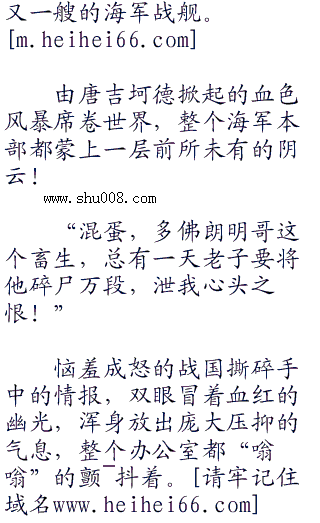 又一艘的海军战舰。
[m.heihei66.com]
由唐吉坷德掀起的血色
风暴席卷世界，整个海军本
部都蒙上一层前所未有的阴
云！
www.shu008.com
“混蛋，多佛朗明哥这
个畜生，总有一天老子要将
他碎尸万段，泄我心头之
恨！”
恼羞成怒的战国撕碎手
中的情报，双眼冒着血红的
幽光，浑身放出庞大压抑的
气息，整个办公室都“嗡
嗡”的颤抖着。[请牢记住
域名www.heihei66.com]